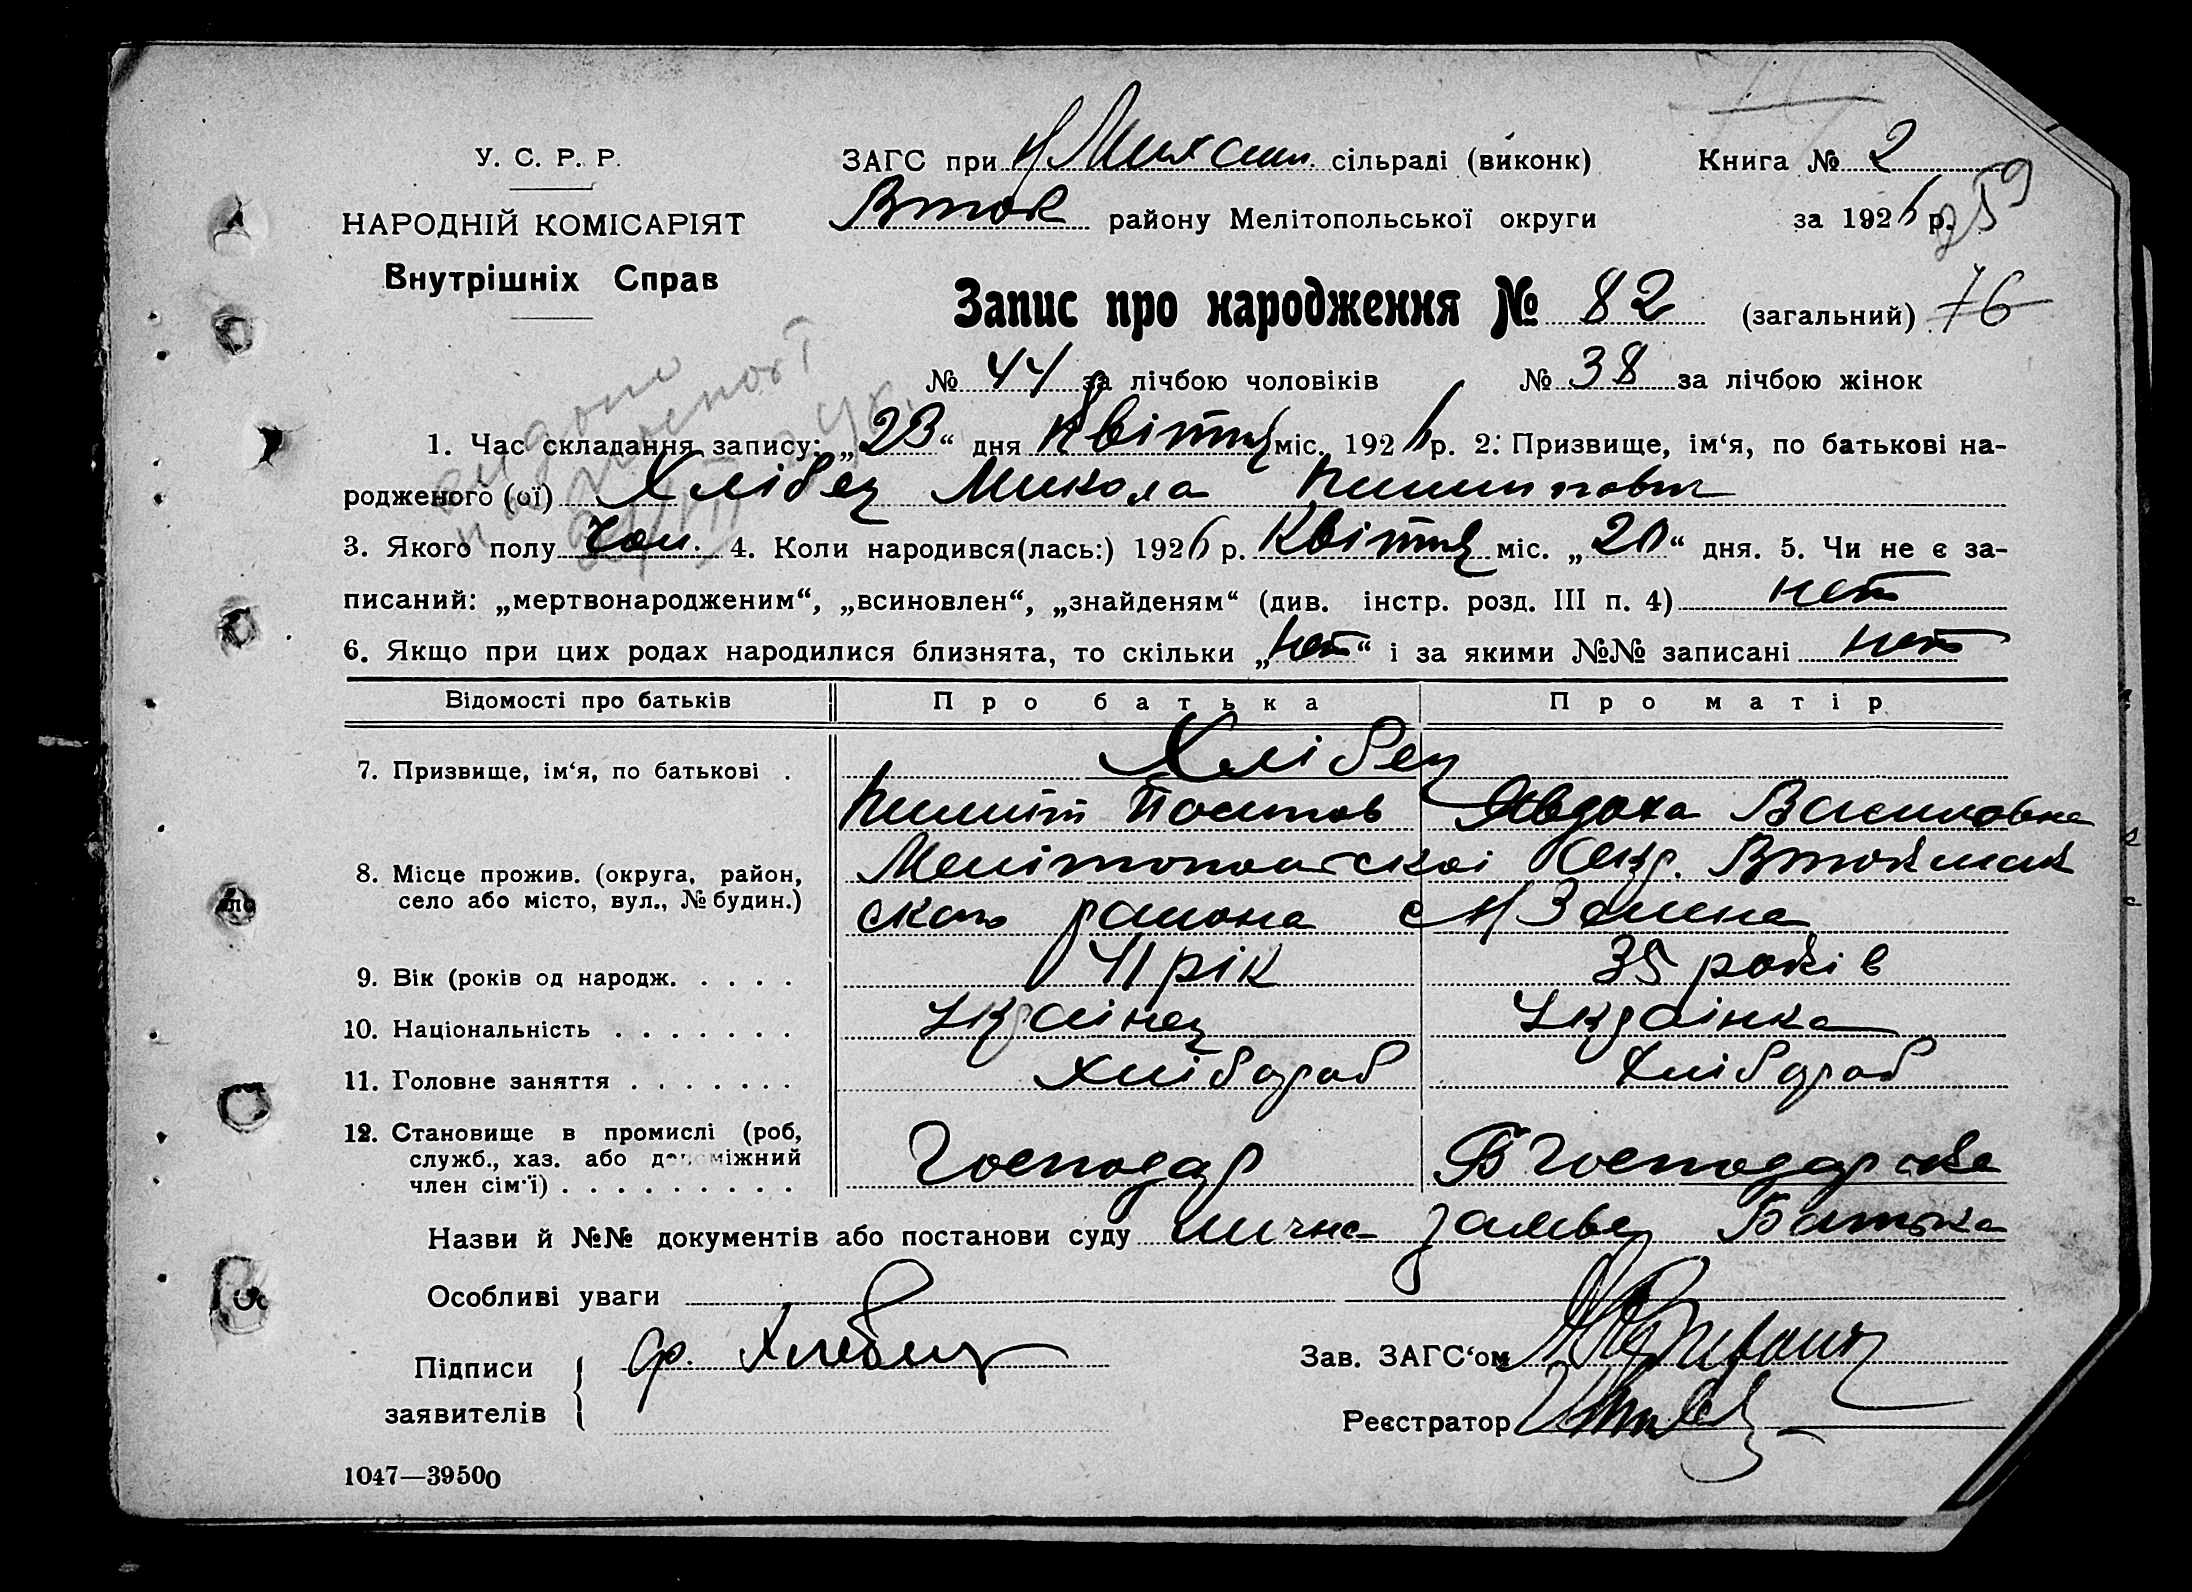 У. С. Р. Р.
НАРОДНІЙ КОМІСАРІЯТ
Внутрішніх Справ
ЗАГС при Н Михайл. сільраді (виконк) Книга № 2
Вток району Мелітопольської округи за 1926 р.
259
Запис про народження № 82 (загальний) 76
№ 44 за лічбою чоловіків № 38 за лічбою жінок
1. Час складання запису: „23“ дня Квітня міс. 1926 р. 2. Призвище, ім‘я, по батькові на-
родженого (ої) Хлібец Микола Пилипович
3. Якого полу Чол. 4. Коли народився(лась:) 1926 р. Квітня міс. „20“ дня. 5. Чи не є за-
писаний: „мертвонародженим“, „всиновлен“, „знайденям“ (див. інстр. розд. III п. 4) нет
6. Якщо при цих родах народилися близнята, то скільки „нет“ і за якими №№ записані нет
Відомості про батьків Про батька Про матір
7. Призвище, ім‘я, по батькові . Хлібец
Пилип Явдоха Василовна
8. Місце прожив. (округа, район, село або місто, вул., № будин.) Мелітопольскоі Окр. Втокмак
ского района с
9. Вік (років од народж. . . . . 41 рік 35 років
10. Національність . . . . . . . Українец Українка
11. Головне заняття . . . . . . . хлібороб хлібороб
12. Становище в промислі (роб, служб., хаз. або допоміжний член сім‘ї) . . . . . . . . . Господар В господарстве
Назви й №№ документів або постанови суду лична заява Батька
Особливі уваги
Підписи заявителів Хлебец
Зав. ЗАГС‘ом
Реєстратор
1047—39500